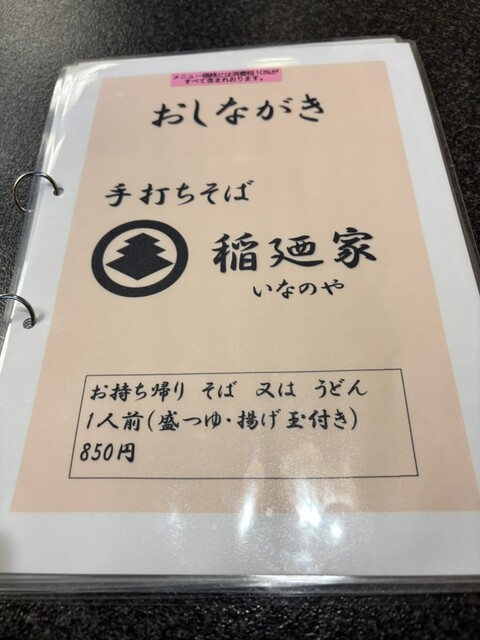 メニュー価格には消費税10%が
すべて含まれおります。
おしながき
手打ちそば
稲廼家
いなのや
お持ち帰り そば 又は うどん
1人前(盛つゆ・揚げ玉付き)
850円